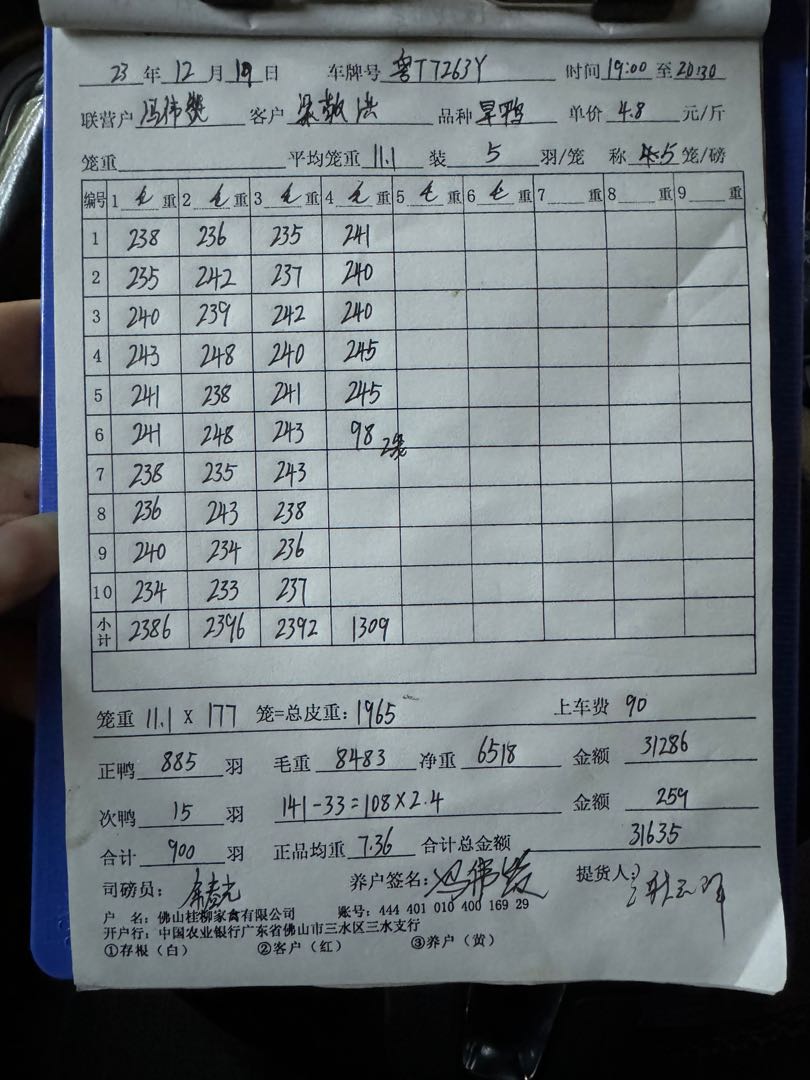 23 年 12 月 19 日 车牌号 粤T7263Y 时间 19:00 至 20:30
联营户 冯伟 客户 梁 洪 品种 旱鸭 单价 4.8 元/斤
笼重 平均笼重 11.1 装 5 羽/笼 称 5 笼/磅
编号 1 毛 重 2 毛 重 3 毛 重 4 毛 重 5 毛 重 6 毛 重 7 重 8 重 9 重
1 238 236 235 241
2 235 242 237 240
3 240 239 242 240
4 243 248 240 245
5 241 238 241 245
6 241 248 243 98 2笼
7 238 235 243
8 236 243 238
9 240 234 236
10 234 233 237
小计 2386 2396 2392 1309
笼重 11.1 X 177 笼=总皮重: 1965 上车费 90
正鸭 885 羽 毛重 8483 净重 6518 金额 31286
次鸭 15 羽 141-33=108×2.4 金额 259
合计 900 羽 正品均重 7.36 合计总金额 31635
司磅员: 养户签名: 冯伟 提货人:
户 名: 佛山桂柳家禽有限公司 账号: 444 401 010 400 169 29
开户行: 中国农业银行广东省佛山市三水区三水支行
①存根(白) ②客户(红) ③养户(黄)